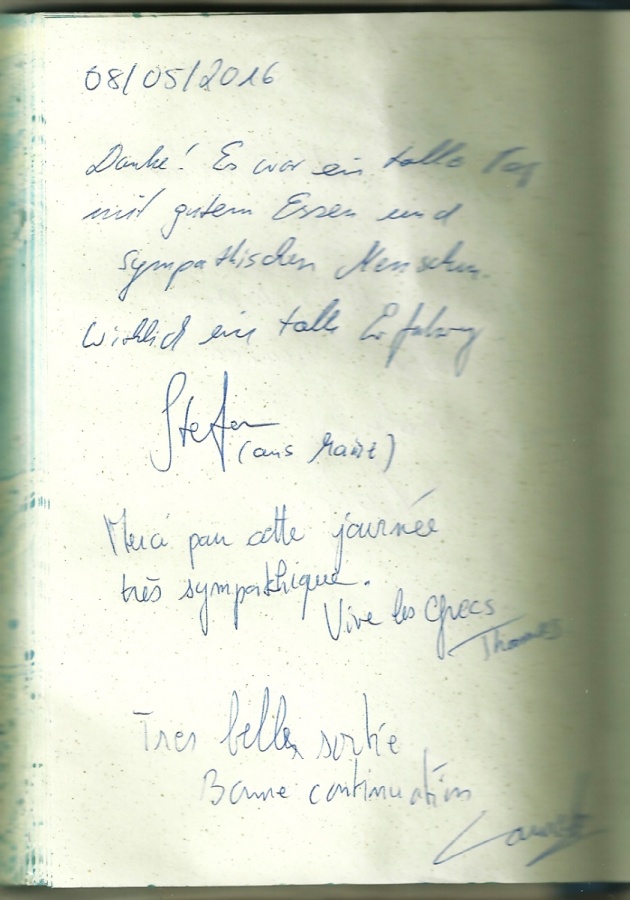 08/05/2016
Danke! Es war ein toller Tag
mit gutem Essen und
sympathischen Menschen.
Wirklich eine tolle Erfahrung
Stefan
(aus Mainz)
Merci pour cette journée
très sympathique.
Vive les Grecs
Thomas
Tres belle sortie
Bonne continuation